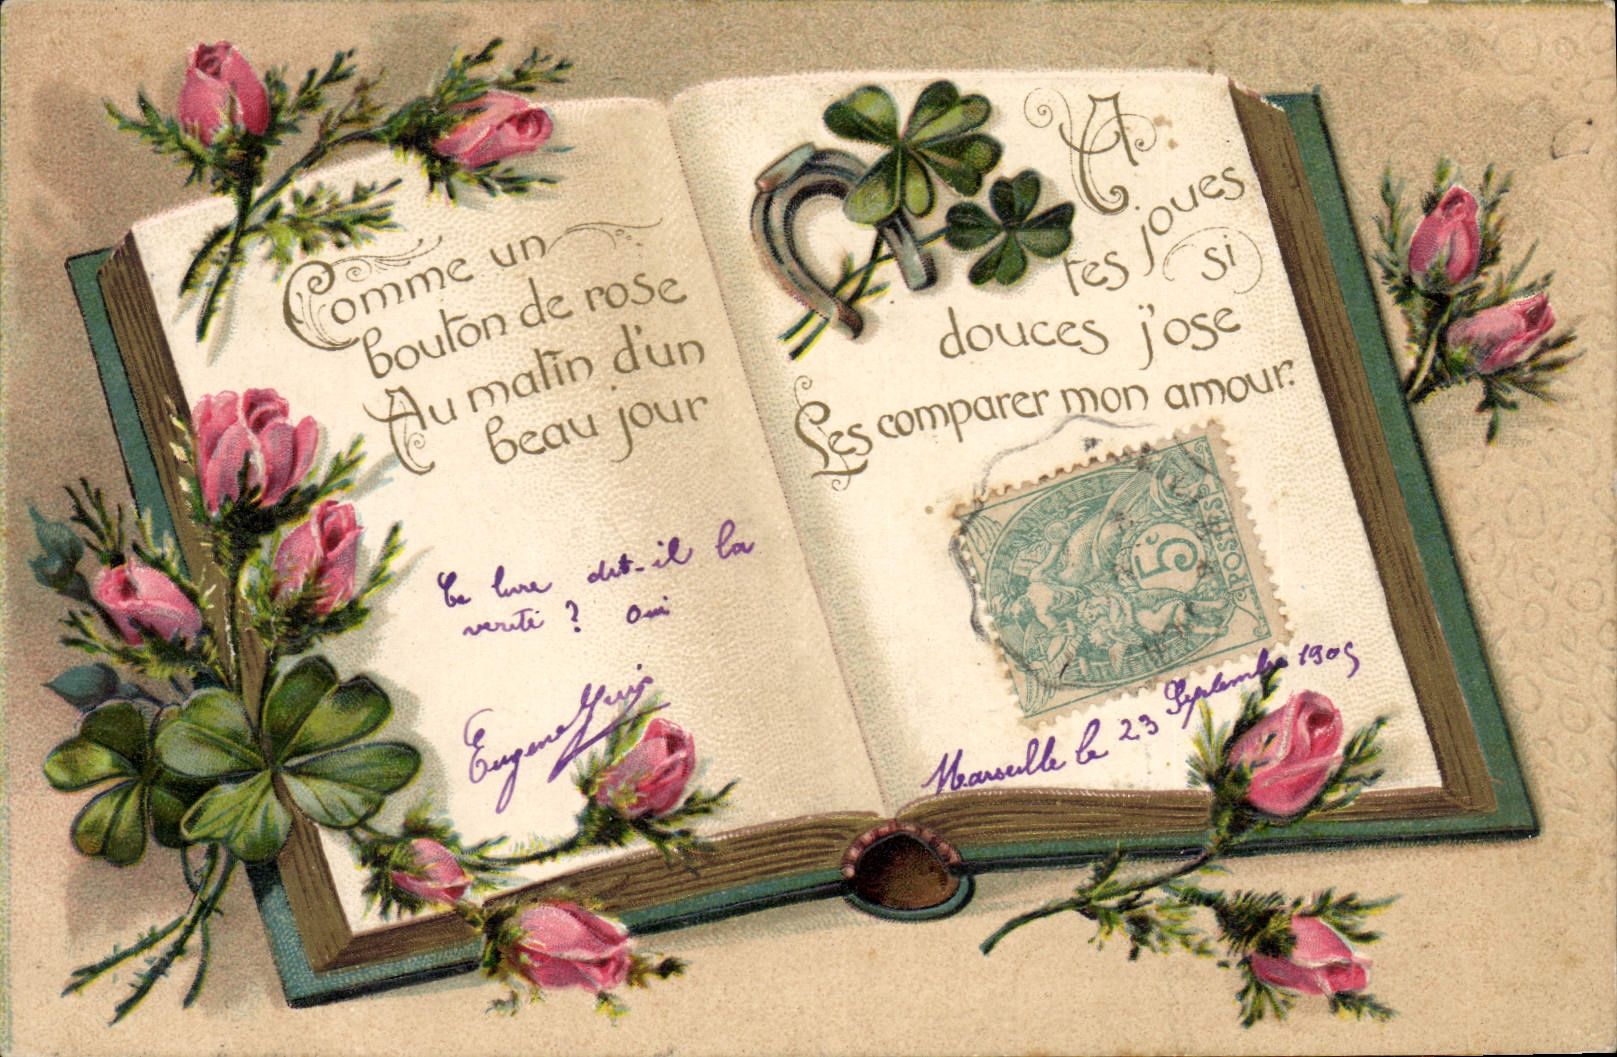 Comme un
bouton de rose
Au matin d'un
beau jour
A
tes joues
si
douces j'ose
Les comparer mon amour.
Ce livre dit-il la
verité ? oui
Eugene
5c
POSTES
Marseille le 23 Septembre 1905